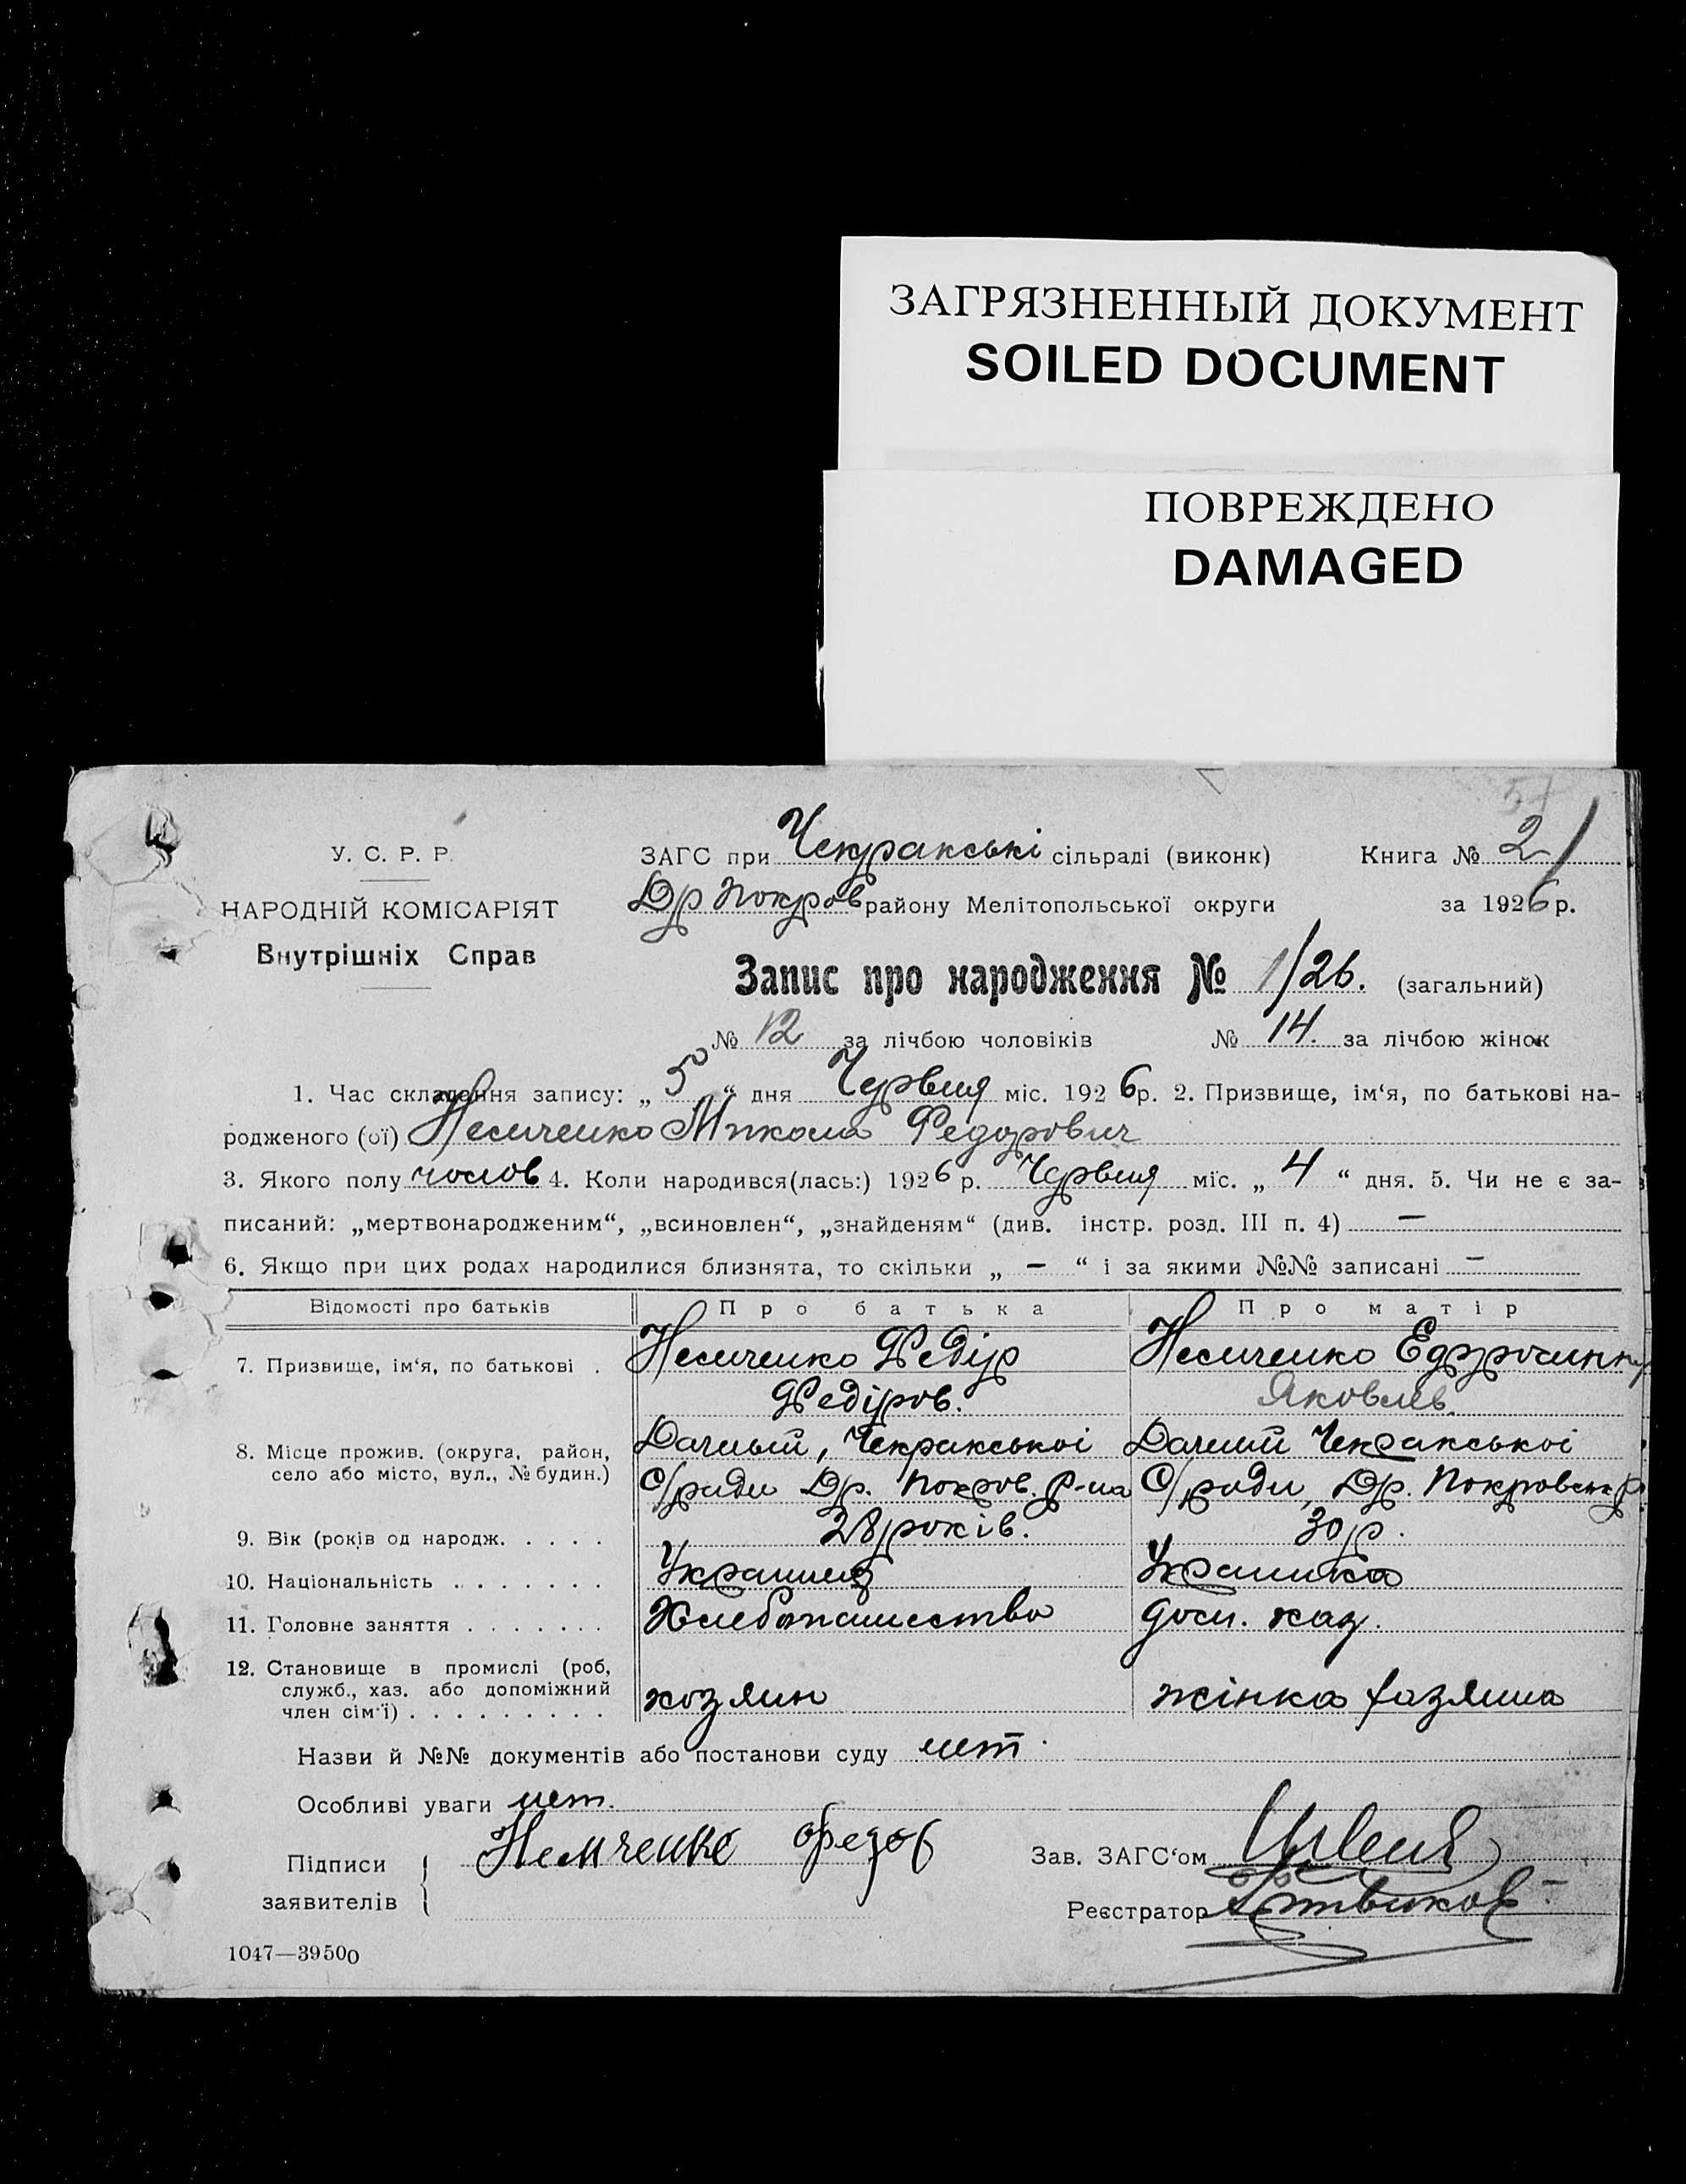 ЗАГРЯЗНЕННЫЙ ДОКУМЕНТ
SOILED DOCUMENT
ПОВРЕЖДЕНО
DAMAGED
У. С. Р. Р.
НАРОДНІЙ КОМІСАРІЯТ
Внутрішніх Справ
ЗАГС при Чекракські сільраді (виконк) Книга № 2
Др Покров району Мелітопольської округи за 1926 р.
Запис про народження № 1/26. (загальний)
№ 12 за лічбою чоловіків № 14. за лічбою жінок
1. Час складення запису: „ 5 “ дня Червня міс. 1926 р. 2. Призвище, ім‘я, по батькові на-
родженого (ої) Немченко Микола Федорович
3. Якого полу чолов 4. Коли народився(лась:) 1926 р. Червня міс. „ 4 “ дня. 5. Чи не є за-
писаний: „мертвонародженим“, „всиновлен“, „знайденям“ (див. інстр. розд. III п. 4) —
6. Якщо при цих родах народилися близнята, то скільки „ — “ і за якими №№ записані —
Відомості про батьків Про батька Про матір
7. Призвище, ім‘я, по батькові . Немченко Федір Немченко
Федіров. Яковлев.
8. Місце прожив. (округа, район, село або місто, вул., № будин.) Дачний, Чекракськоі Дачний Чекракськоі
С/ради Др. Покров. р-на С/ради, Др. Покровськ р
9. Вік (років од народж. . . . . 28 років. 30 р.
10. Національність . . . . . . . Украинец Украинка
11. Головне заняття . . . . . . . Хлебопашество дом. хаз.
12. Становище в промислі (роб, служб., хаз. або допоміжний член сім‘ї) . . . . . . . . . хозяин жінка хазяина
Назви й №№ документів або постанови суду нет.
Особливі уваги нет.
Підписи заявителів Немченко Федор
Зав. ЗАГС‘ом
Реєстратор
1047—39500